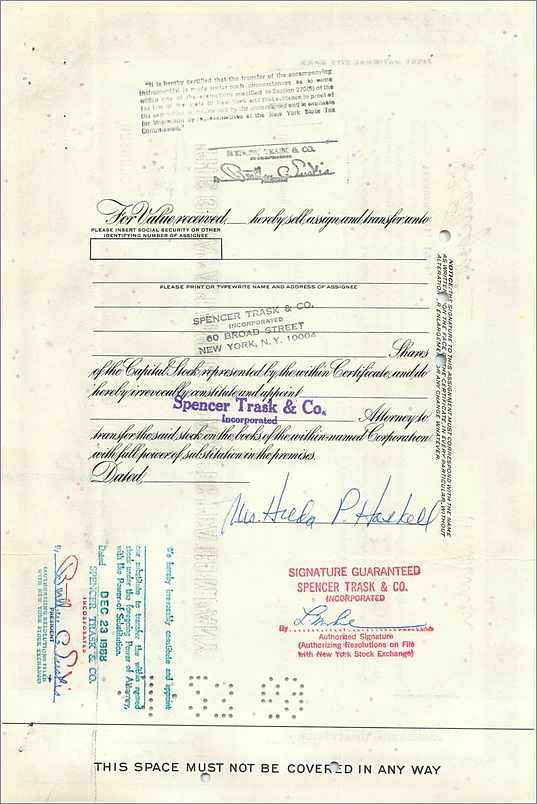 "It is hereby certified that the transfer of the accompanying
instrument(s) is made under such circumstances as to come
within one of the exemptions specified in Section 270(5) of the
Tax Law of the State of New York and that evidence in proof of
the exemption is maintained by the undersigned and is available
for inspection by representatives of the New York State Tax
Commission."
SPENCER TRASK & CO.
INCORPORATED
For Value received, hereby sell, assign and transfer unto
PLEASE INSERT SOCIAL SECURITY OR OTHER
IDENTIFYING NUMBER OF ASSIGNEE
PLEASE PRINT OR TYPEWRITE NAME AND ADDRESS OF ASSIGNEE
SPENCER TRASK & CO.
INCORPORATED
60 BROAD STREET
NEW YORK, N.Y. 10004
Shares
of the Capital Stock represented by the within Certificate, and do
hereby irrevocably constitute and appoint
Spencer Trask & Co.
Incorporated
Attorney to
transfer the said stock on the books of the within-named Corporation
with full power of substitution in the premises.
Dated,
NOTICE: THE SIGNATURE TO THIS ASSIGNMENT MUST CORRESPOND WITH THE NAME
AS WRITTEN ON THE FACE THE CERTIFICATE, IN EVERY PARTICULAR, WITHOUT
ALTERATION R ENLARGEMENT OR ANY CHANGE WHATEVER.
Mrs. Hilda P. Haskell
SIGNATURE GUARANTEED
SPENCER TRASK & CO.
INCORPORATED
By
Authorized Signature
(Authorizing Resolutions on File
with New York Stock Exchange)
We hereby irrevocably constitute and appoint
our substitute to transfer the within named
stock under the foregoing Power of Attorney,
with the Power of Substitution.
Dated DEC 23 1968
SPENCER TRASK & CO.
INCORPORATED
By
PRESIDENT
(AUTHORIZING RESOLUTIONS FILED
WITH NEW YORK STOCK EXCHANGE)
THIS SPACE MUST NOT BE COVERED IN ANY WAY